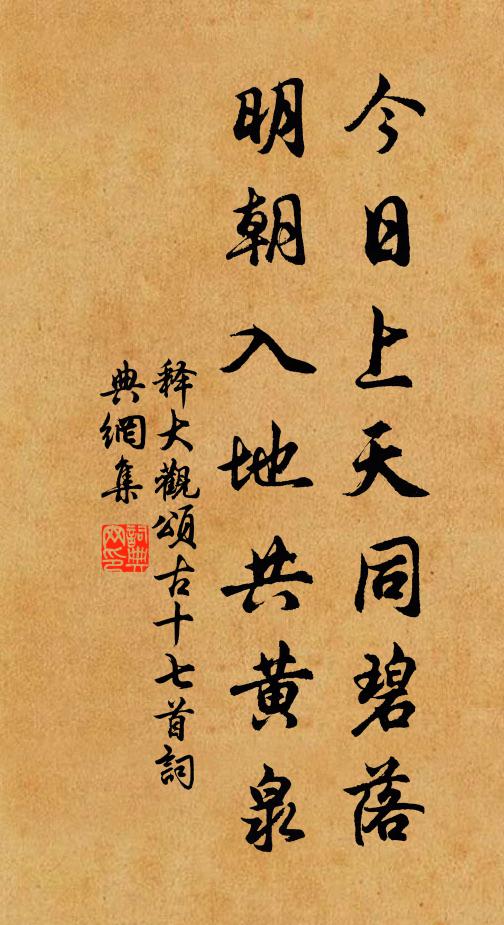 今日上天同碧落
明朝入地共黄泉
释大觀頌古十七首詞
典網集
詞典
网印